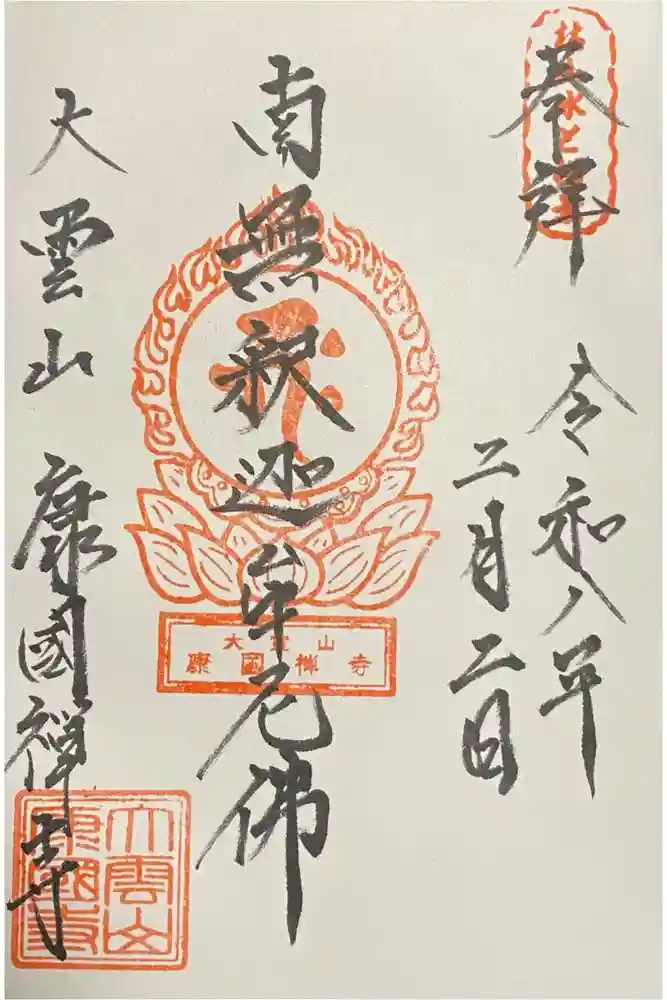 奉拝
令和八年
二月二日
南無釈迦牟尼佛
大雲山
康國禅寺
大雲山
康國禅寺
大雲山
康國寺